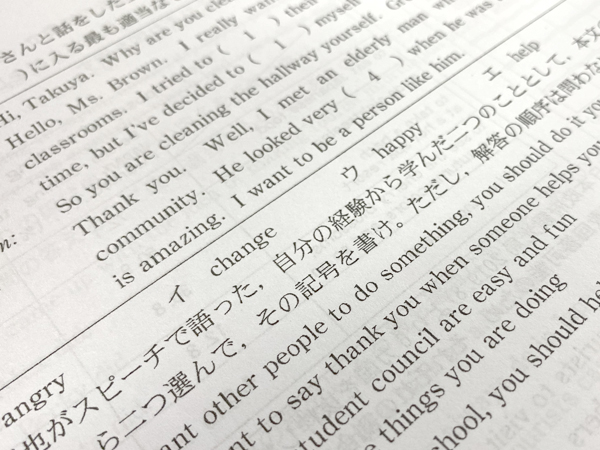 さんと話をした
)に入る最も適当な
Hi, Takuya. Why are you cle
Hello, Ms. Brown. I really want
classrooms. I tried to ( 1 ) their
time, but I've decided to ( 1 ) myself
So you are cleaning the hallway yourself. Gr
Thank you. Well, I met an elderly man wh
community. He looked very ( 4 ) when he was
is amazing. I want to be a person like him.
n:
angry イ change ウ happy エ help
也がスピーチで語った，自分の経験から学んだ二つのこととして，本文の
ら二つ選んで，その記号を書け。ただし，解答の順序は問わない
ant other people to do something, you should do it yo
nt to say thank you when someone helps you
tudent council are easy and fun
e things you are doing
chool, you should hel